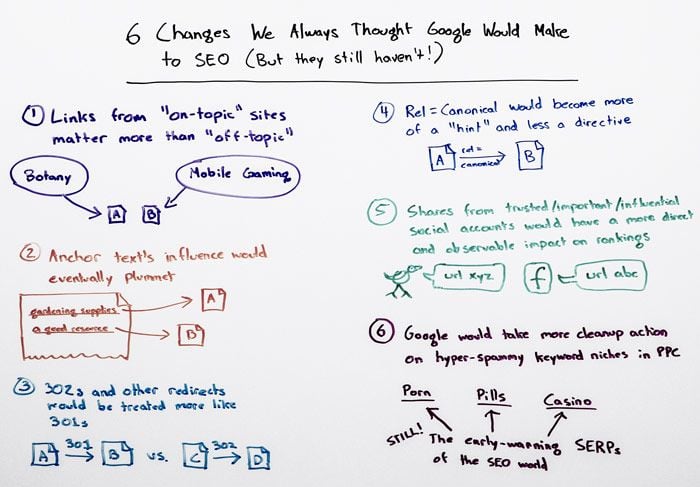 6 Changes We Always Thought Google Would Make
to SEO (But they still haven't!)
① Links from "on-topic" sites
matter more than "off-topic"
Botany
Mobile Gaming
A
B
② Anchor text's influence would
eventually plummet
gardening supplies
a good resource
A
B
③ 302s and other redirects
would be treated more like
301s
A 301 B vs. C 302 D
④ Rel=Canonical would become more
of a "hint" and less a directive
A rel=canonical B
⑤ Shares from trusted/important/influential
social accounts would have a more direct
and observable impact on rankings
url xyz
f
url abc
⑥ Google would take more cleanup action
on hyper-spammy keyword niches in PPC
Porn Pills Casino
STILL! The early-warning SERPs
of the SEO world